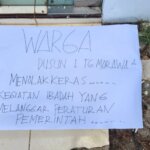 WARGA
DUSUN 1 TG MORAWA A
MENOLAK KERAS.....
KEGIATAN IBADAH YANG
MELANGGAR PERATURAN
PEMERINTAH......